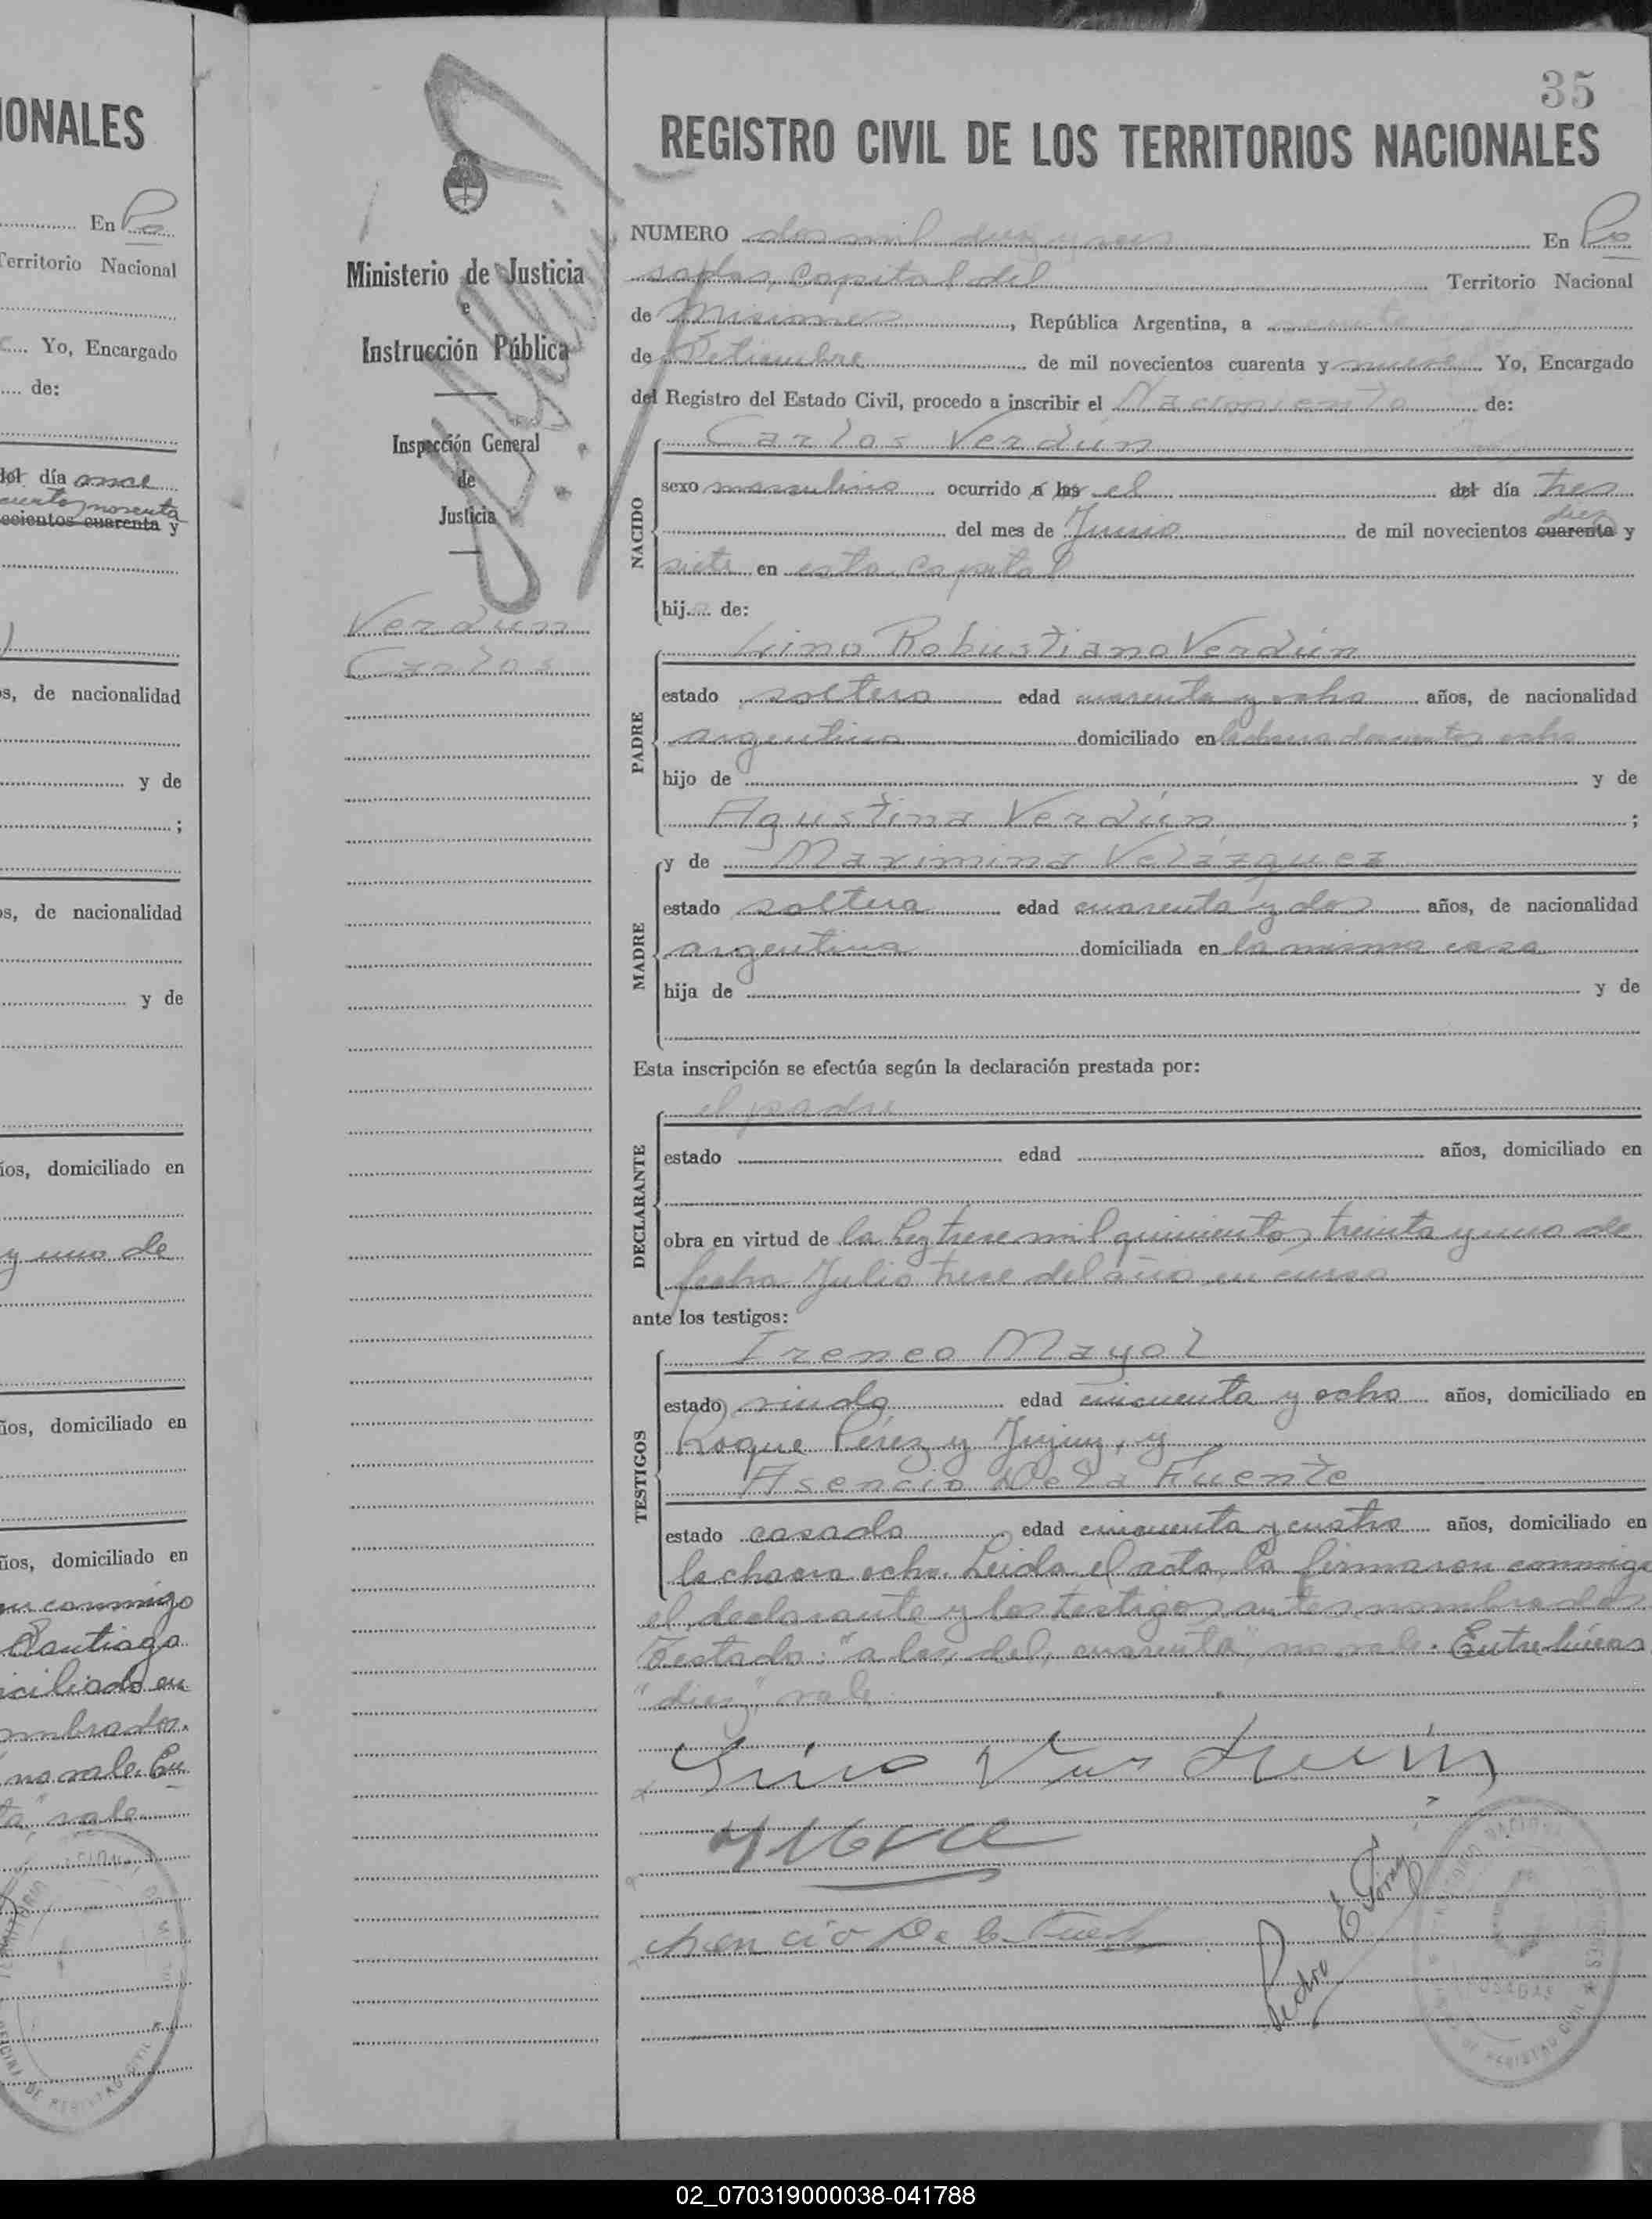 IONALES
En Po
Territorio Nacional
Yo, Encargado
de:
del día once
cientos noventa
ecientos cuarenta y
s, de nacionalidad
y de
;
os, de nacionalidad
y de
ios, domiciliado en
y uno de
ños, domiciliado en
ños, domiciliado en
conmigo
Santiago
iciliado en
ombrados.
no vale. En
vale
35
REGISTRO CIVIL DE LOS TERRITORIOS NACIONALES
Ministerio de Justicia
e
Instrucción Pública
Inspección General
de
Justicia
Verdún
Carlos
NUMERO dos mil diez y seis En Po
sadas, Capital del Territorio Nacional
de Misiones, República Argentina, a
de Setiembre de mil novecientos cuarenta y nueve Yo, Encargado
del Registro del Estado Civil, procedo a inscribir el Nacimiento de:
NACIDO
Carlos Verdún
sexo masculino ocurrido a las el del día tres
diez
del mes de Junio de mil novecientos cuarenta y
siete en esta Capital
hijo de:
PADRE
Lino Robustiano Verdún
estado soltero edad cuarenta y ocho años, de nacionalidad
argentino domiciliado en la chacra doscientos ocho
hijo de y de
Agustina Verdún ;
MADRE
y de Maximina Velázquez
estado soltera edad cuarenta y dos años, de nacionalidad
argentina domiciliada en la misma casa
hija de y de
Esta inscripción se efectúa según la declaración prestada por:
DECLARANTE
el padre
estado edad años, domiciliado en
obra en virtud de la Ley trece mil quinientos treinta y uno de
fecha Julio trece del año en curso
ante los testigos:
TESTIGOS
Ireneo Mayol
estado viudo edad cincuenta y ocho años, domiciliado en
Roque Pérez y Jujuy, y
Asencio De la Fuente
estado casado edad cincuenta y cuatro años, domiciliado en
la chacra ocho. Leida el acta, la firmaron conmigo
el declarante y los testigos antes nombrados
Testado: "a las, del, cuarenta", no vale. Entre lineas
"diez", vale
Lino Verduin
Asencio De la Fuente
Pedro E
POSADAS
02_070319000038-041788